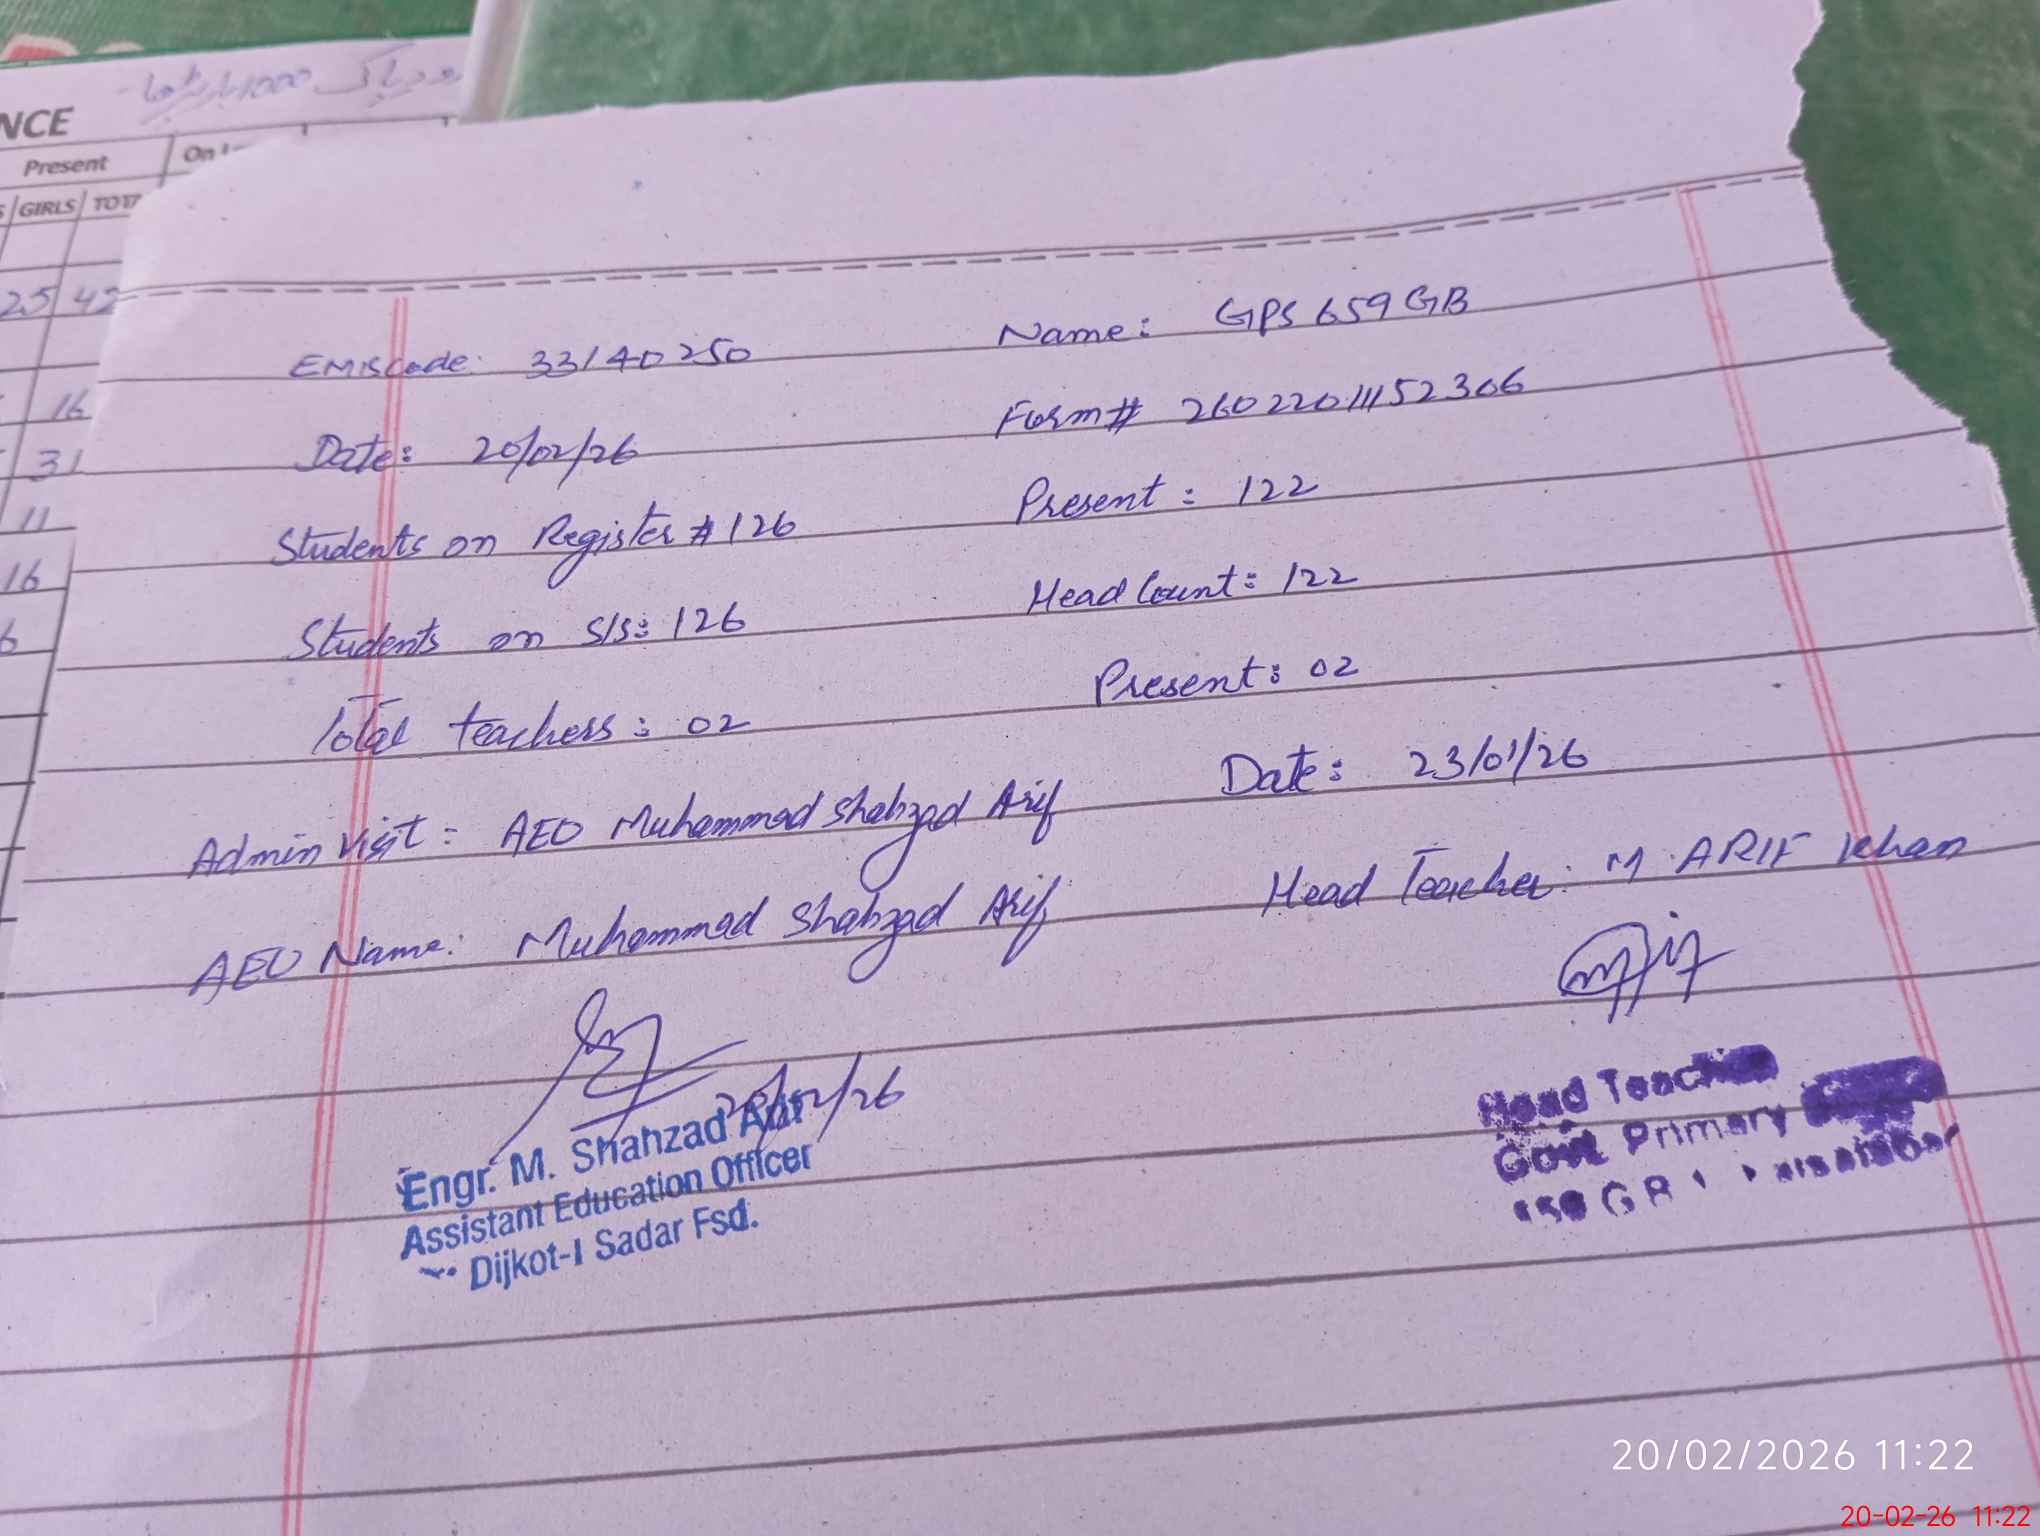 NCE
Present
GIRLS TOTA
25 42
16
31
11
16
6
EMIS code: 33140250 Name: GPS 659 GB
Date: 20/02/26 Form# 260220111152306
Students on Register # 126 Present: 122
Students on SIS: 126 Head Count: 122
Total teachers: 02 Present: 02
Admin visit: AEO Muhammad Shahzad Arif Date: 23/01/26
AEO Name: Muhammad Shahzad Arif Head Teacher: M. ARIF Khan
20/02/26
Engr. M. Shahzad Arif
Assistant Education Officer
Dijkot-I Sadar Fsd.
Head Teacher
Govt Primary
GB
20/02/2026 11:22
20-02-26 11:22